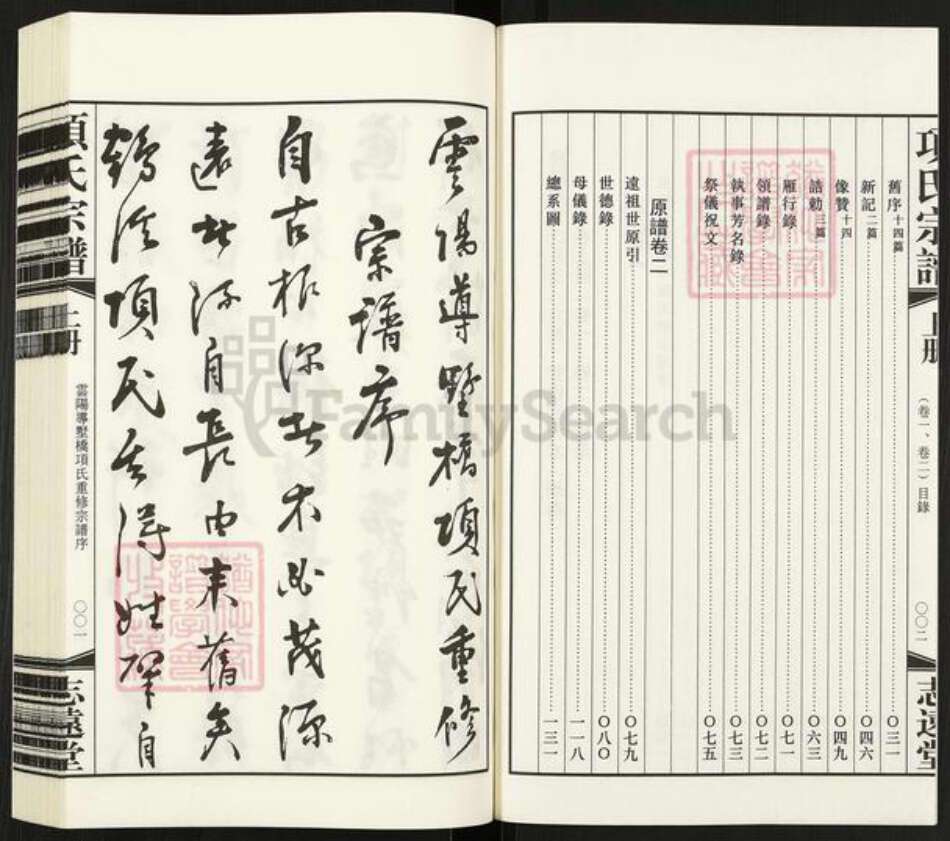 項氏宗譜 上册
(卷一、卷二)目錄
〇〇二
志遠堂
舊序十四篇 〇三一
新記二篇 〇四六
像贊十四 〇四九
誥勅三篇 〇六三
雁行錄 〇七一
領譜錄 〇七二
執事芳名錄 〇七三
祭儀祝文 〇七五
原譜卷二
遠祖世原引 〇七九
世德錄 〇八〇
母儀錄 一一八
總系圖 一三一
雲陽導墅橋項氏重修
宗譜序
自古根深者木必茂源
遠者流自長由來舊矣
鶴溪項氏其得姓肇自
項氏宗譜 上册
雲陽導墅橋項氏重修宗譜序
〇〇一
志遠堂
FamilySearch